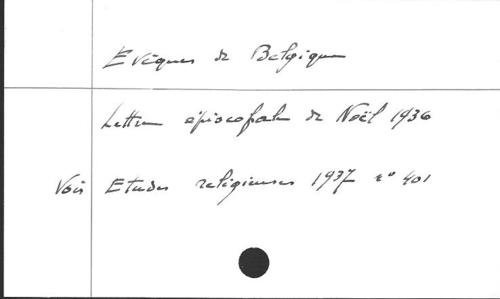 Evêques de Belgique
Lettre épiscopale de Noël 1936
Voir Etudes religieuses 1937 n° 401